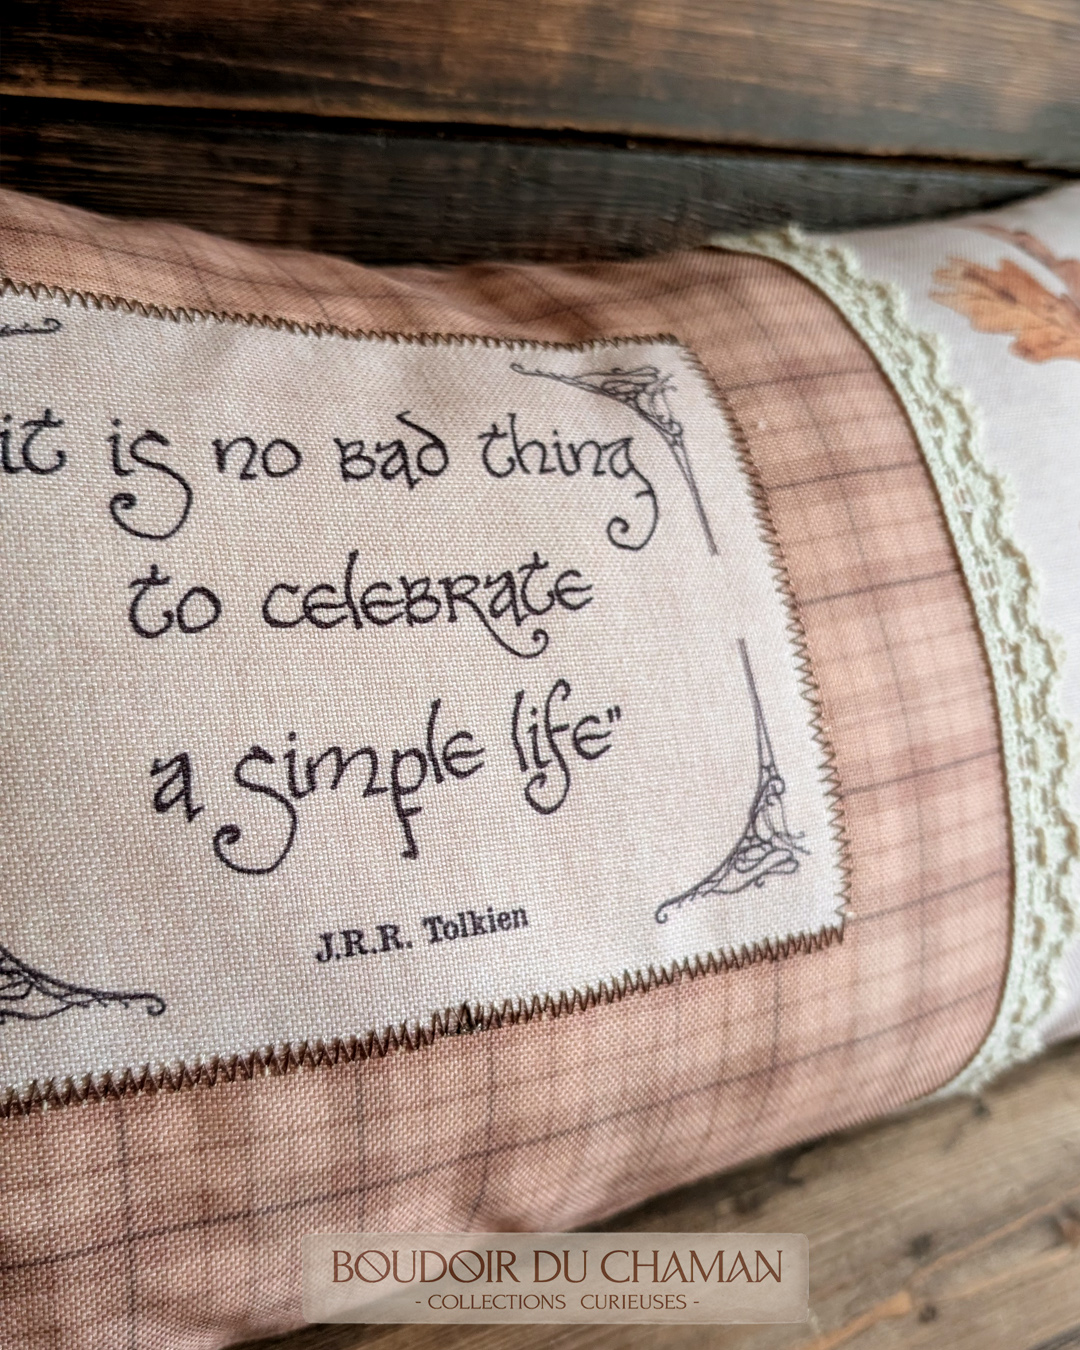 it is no bad thing
to celebrate
a simple life"
J.R.R. Tolkien
BOUDOIR DU CHAMAN
- COLLECTIONS CURIEUSES -